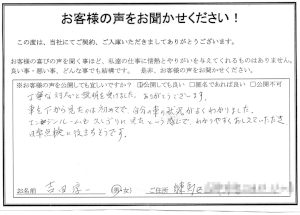 お客様の声をお聞かせください！
この度は、当社にてご契約、ご入庫いただきましてありがとうございます。
お客様の喜びの声を聞く事ほど、私達の仕事に情熱とやりがいを与えてくれるものはありません。
良い事・悪い事、どんな事でも結構です。 是非、お客様の声をお聞かせください。
※お客様の声を公開しても宜しいですか？ ☑公開しても良い □匿名であれば良い □公開不可
丁寧な対応と説明を受けました。ありがとうございます。
車を下から見たのは初めてで、自分の車の状況がよくわかりました。
エンジンルームも
わかりやすく
お名前 吉田 (男・女) ご住所 練馬区